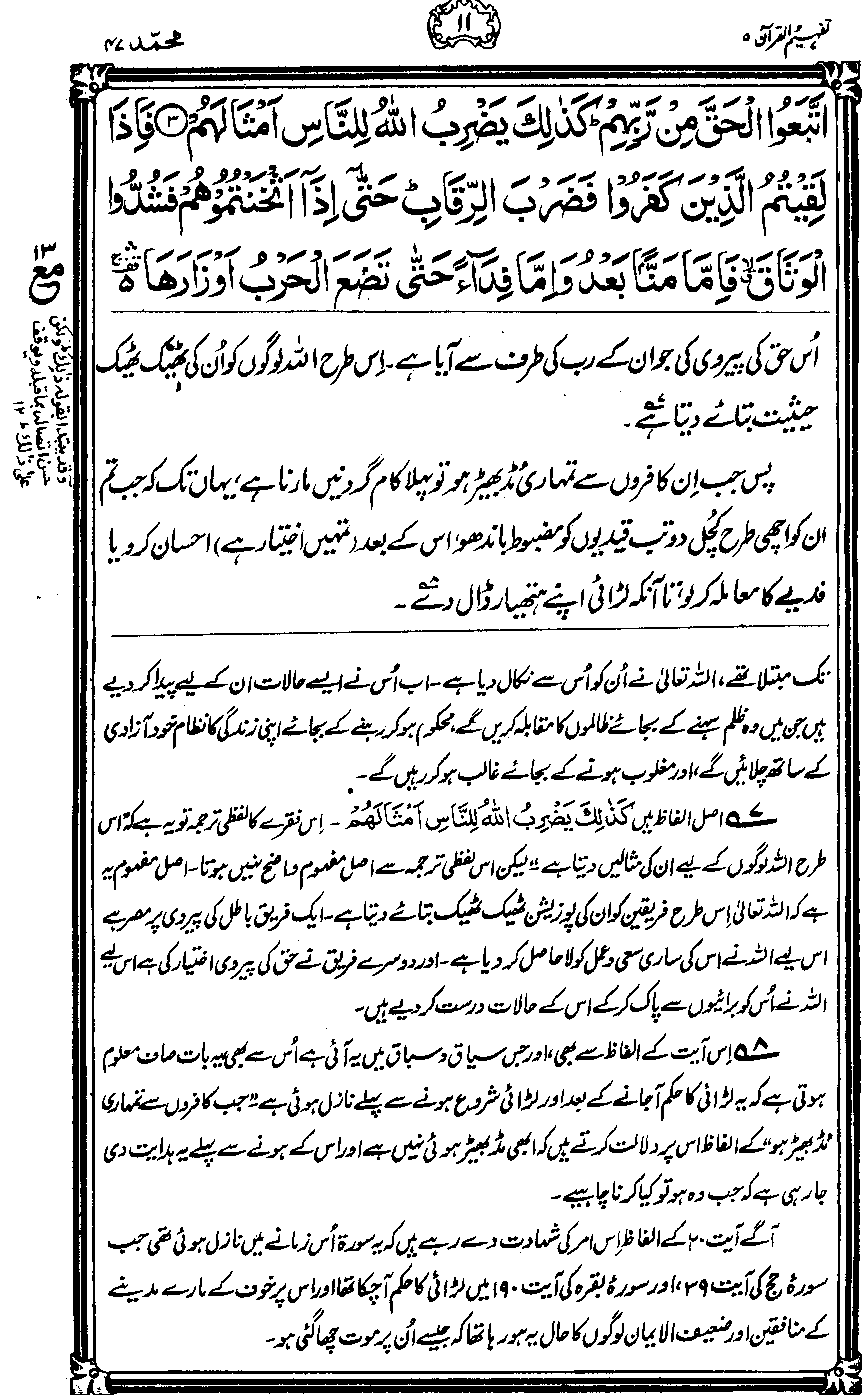 تفہیم القرآن ۵
۱۱
محمّد ۴۷
اتَّبَعُوا الْحَقَّ مِنْ رَّبِّهِمْ ؕ كَذٰلِكَ يَضْرِبُ اللهُ لِلنَّاسِ اَمْثَالَهُمْ ﴿۳﴾ فَاِذَا
لَقِيْتُمُ الَّذِيْنَ كَفَرُوْا فَضَرْبَ الرِّقَابِ ؕ حَتّٰۤى اِذَاۤ اَثْخَنْتُمُوْهُمْ فَشُدُّوا
الْوَثَاقَ ۙ فَاِمَّا مَنًّۢا بَعْدُ وَ اِمَّا فِدَآءً حَتّٰى تَضَعَ الْحَرْبُ اَوْزَارَهَا ۛ۵
۱۳
مع
اُس حق کی پیروی کی جو ان کے رب کی طرف سے آیا ہے۔ اِس طرح اللہ لوگوں کو اُن کی ٹھیک ٹھیک
حیثیت بتائے دیتا ہے۔
پس جب اِن کافروں سے تمہاری مُڈ بھیڑ ہو تو پہلا کام گردنیں مارنا ہے، یہاں تک کہ جب تم
ان کو اچھی طرح کچُل دو تب قیدیوں کو مضبوط باندھو، اس کے بعد (تمہیں اختیار ہے) احسان کرو یا
فدیے کا معاملہ کر لو، تا آنکہ لڑائی اپنے ہتھیار ڈال دے۔
تک مبتلا تھے، اللہ تعالیٰ نے اُن کو اُس سے نکال دیا ہے۔ اب اُس نے ایسے حالات ان کے لیے پیدا کر دیے
ہیں جن میں وہ ظلم سہنے کے بجائے ظالموں کا مقابلہ کریں گے، محکوم ہو کر رہنے کے بجائے اپنی زندگی کا نظام خود آزادی
کے ساتھ چلائیں گے، اور مغلوب ہونے کے بجائے غالب ہو کر رہیں گے۔
۷ اصل الفاظ ہیں كَذٰلِكَ يَضْرِبُ اللهُ لِلنَّاسِ اَمْثَالَهُمْ ۔ اِس فقرے کا لفظی ترجمہ تو یہ ہے کہ "اس
طرح اللہ لوگوں کے لیے ان کی مثالیں دیتا ہے" لیکن اس لفظی ترجمہ سے اصل مفہوم واضح نہیں ہوتا۔ اصل مفہوم یہ
ہے کہ اللہ تعالیٰ اِس طرح فریقین کو ان کی پوزیشن ٹھیک ٹھیک بتائے دیتا ہے۔ ایک فریق باطل کی پیروی پر مصر ہے
اس لیے اللہ نے اس کی ساری سعی و عمل کو لا حاصل کر دیا ہے۔ اور دوسرے فریق نے حق کی پیروی اختیار کی ہے اس لیے
اللہ نے اُس کو برائیوں سے پاک کر کے اس کے حالات درست کر دیے ہیں۔
۸ اِس آیت کے الفاظ سے بھی، اور جس سیاق و سباق میں یہ آئی ہے اُس سے بھی یہ بات صاف معلوم
ہوتی ہے کہ یہ لڑائی کا حکم آجانے کے بعد اور لڑائی شروع ہونے سے پہلے نازل ہوئی ہے۔ "جب کافروں سے تمہاری
مُڈ بھیڑ ہو" کے الفاظ اس پر دلالت کرتے ہیں کہ ابھی مڈ بھیڑ ہوئی نہیں ہے اور اس کے ہونے سے پہلے یہ ہدایت دی
جا رہی ہے کہ جب وہ ہو تو کیا کرنا چاہیے۔
آگے آیت ۲۰ کے الفاظ اِس امر کی شہادت دے رہے ہیں کہ یہ سورۃ اُس زمانے میں نازل ہوئی تھی جب
سورۂ حج کی آیت ۳۹، اور سورۂ بقرہ کی آیت ۱۹۰ میں لڑائی کا حکم آچکا تھا اور اس پر خوف کے مارے مدینے
کے منافقین اور ضعیف الایمان لوگوں کا حال یہ ہو رہا تھا کہ جیسے اُن پر موت چھا گئی ہو۔